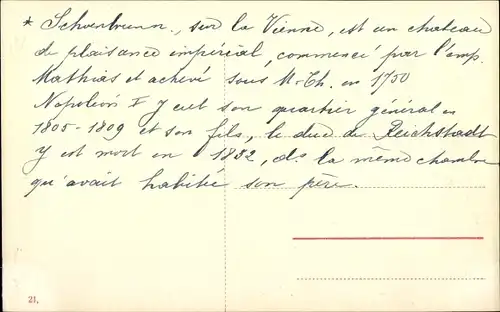 * Schoenbrunn, sur la Vienne, est un chateau
de plaisance impérial, commencé par l'emp.
Mathias et achevé sous M-Th. en 1750
Napoléon I y eut son quartier général en
1805-1809 et son fils, le duc de Reichstadt
y est mort en 1832, ds la même chambre
qu'avait habitée son père.
21.